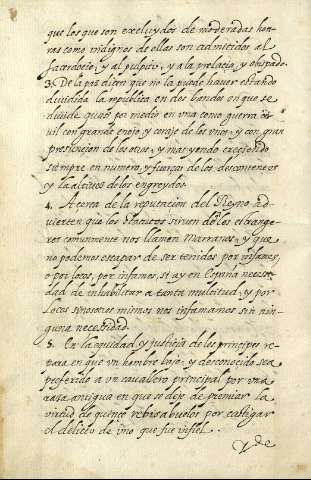 que los que son excluydos de moderadas hon
ras como indignos de ellas son admitidos al
sacerdocio, y al pulpito, y a la prelacia, y obispado.
3. De la paz dicen que no la puede hauer estando
diuidida la republica en dos bandos en que se
diuide quasi por medio en vna como guerra ci
uil con grande enojo, y coraje de los vnos, y con gran
presuncion de los otros, y mas yendo creciendo
siempre en numero, y fuerças de los descontentos
y la altivez de los engreydos.
4. Acerca de la reputacion del Reyno ad
uierten que los statutos siruen de q los estrange
ros comunmente nos llamen Marranos, y que
no podemos escapar de ser tenidos por infames,
o por locos, por infames, si ay en España necesi
dad de inhabilitar a tanta multitud, y por
locos si nosotros mismos nos infamamos sin nin
guna necesidad.
5. En la equidad, y justicia de los principes re
paran en que vn hombre bajo, y desconocido sea
preferido a vn cauallero principal por vna
raza antigua en que se deje de premiar la
virtud de quence rebisabuelos por castigar
el delicto de vno que fue infiel.
Y de